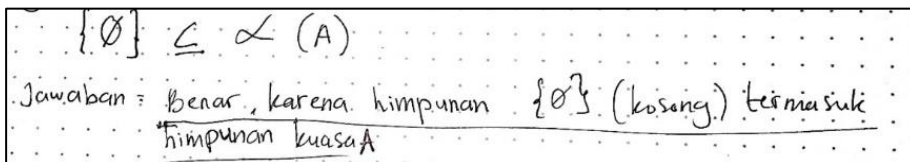 {Ø} ⊆ ∝ (A)
Jawaban = Benar, karena himpunan {Ø} (kosong) termasuk
himpunan kuasa A